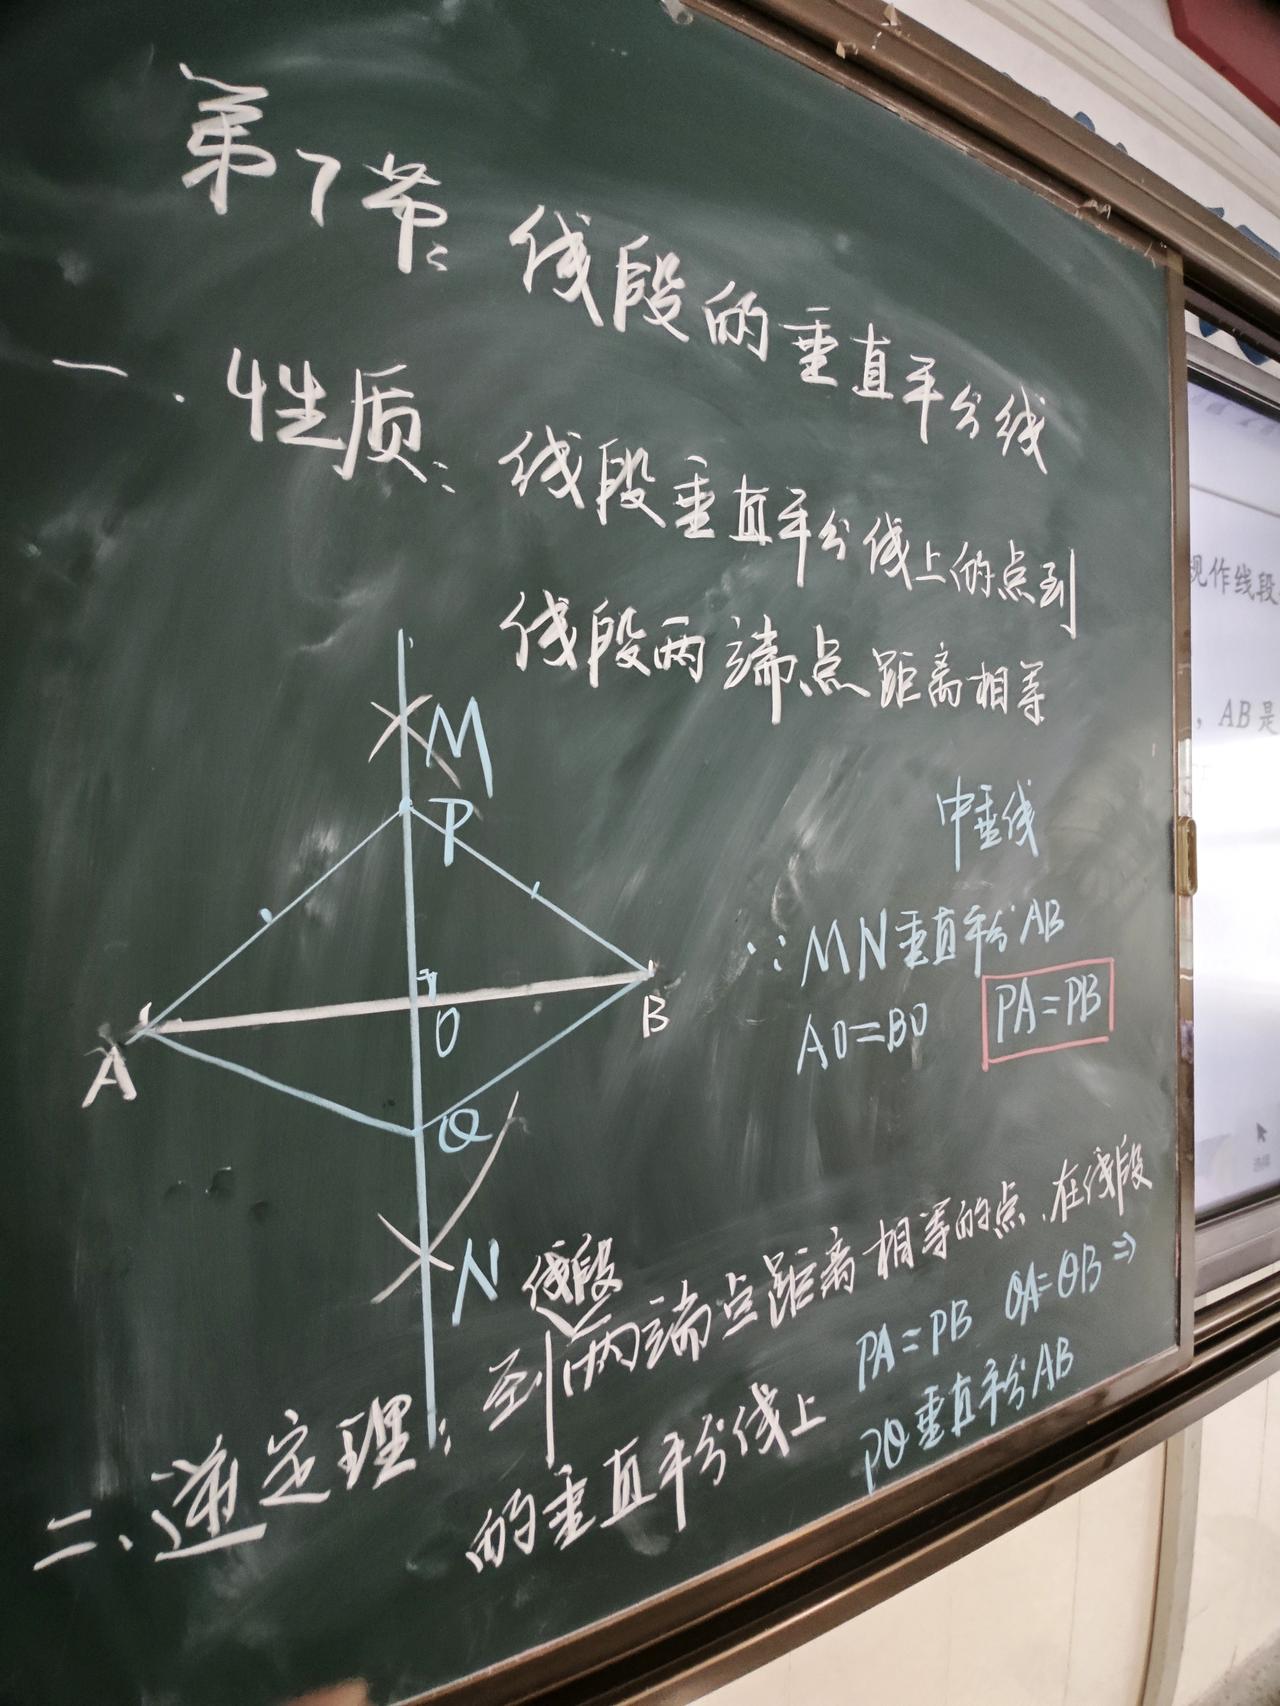 第7节:线段的垂直平分线
一.性质:线段垂直平分线上的点到
线段两端点距离相等
M
P
A
O
B
Q
N
中垂线
∵MN垂直平分AB
AO=BO PA=PB
线段
二、逆定理:到两端点距离相等的点、在线段
的垂直平分线上
PA=PB QA=QB⇒
PQ垂直平分AB
规作线段
,AB是